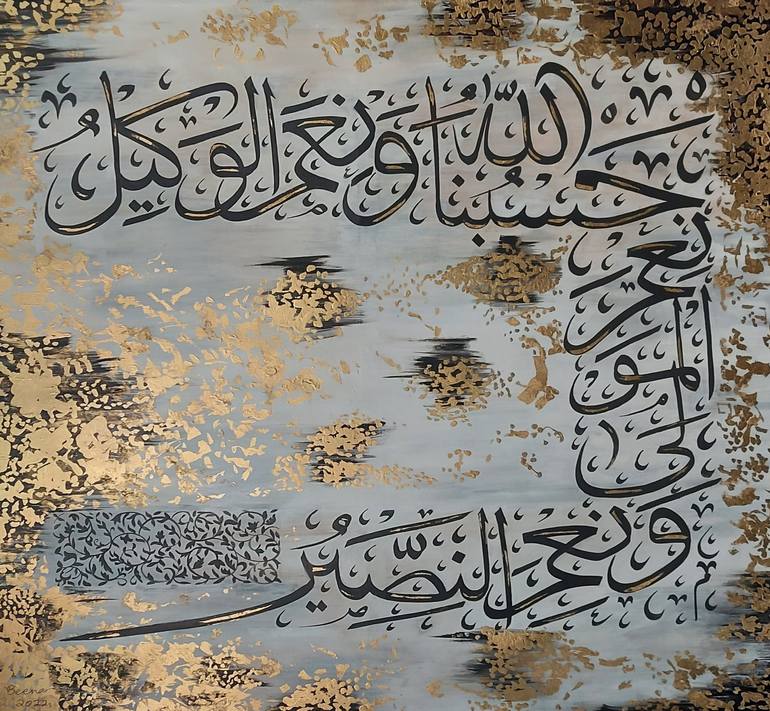 حَسْبُنَا اللّٰهُ وَنِعْمَ الْوَكِيلُ
نِعْمَ
الْمَوْلَى
وَنِعْمَ النَّصِّيْرُ
Beena
2022